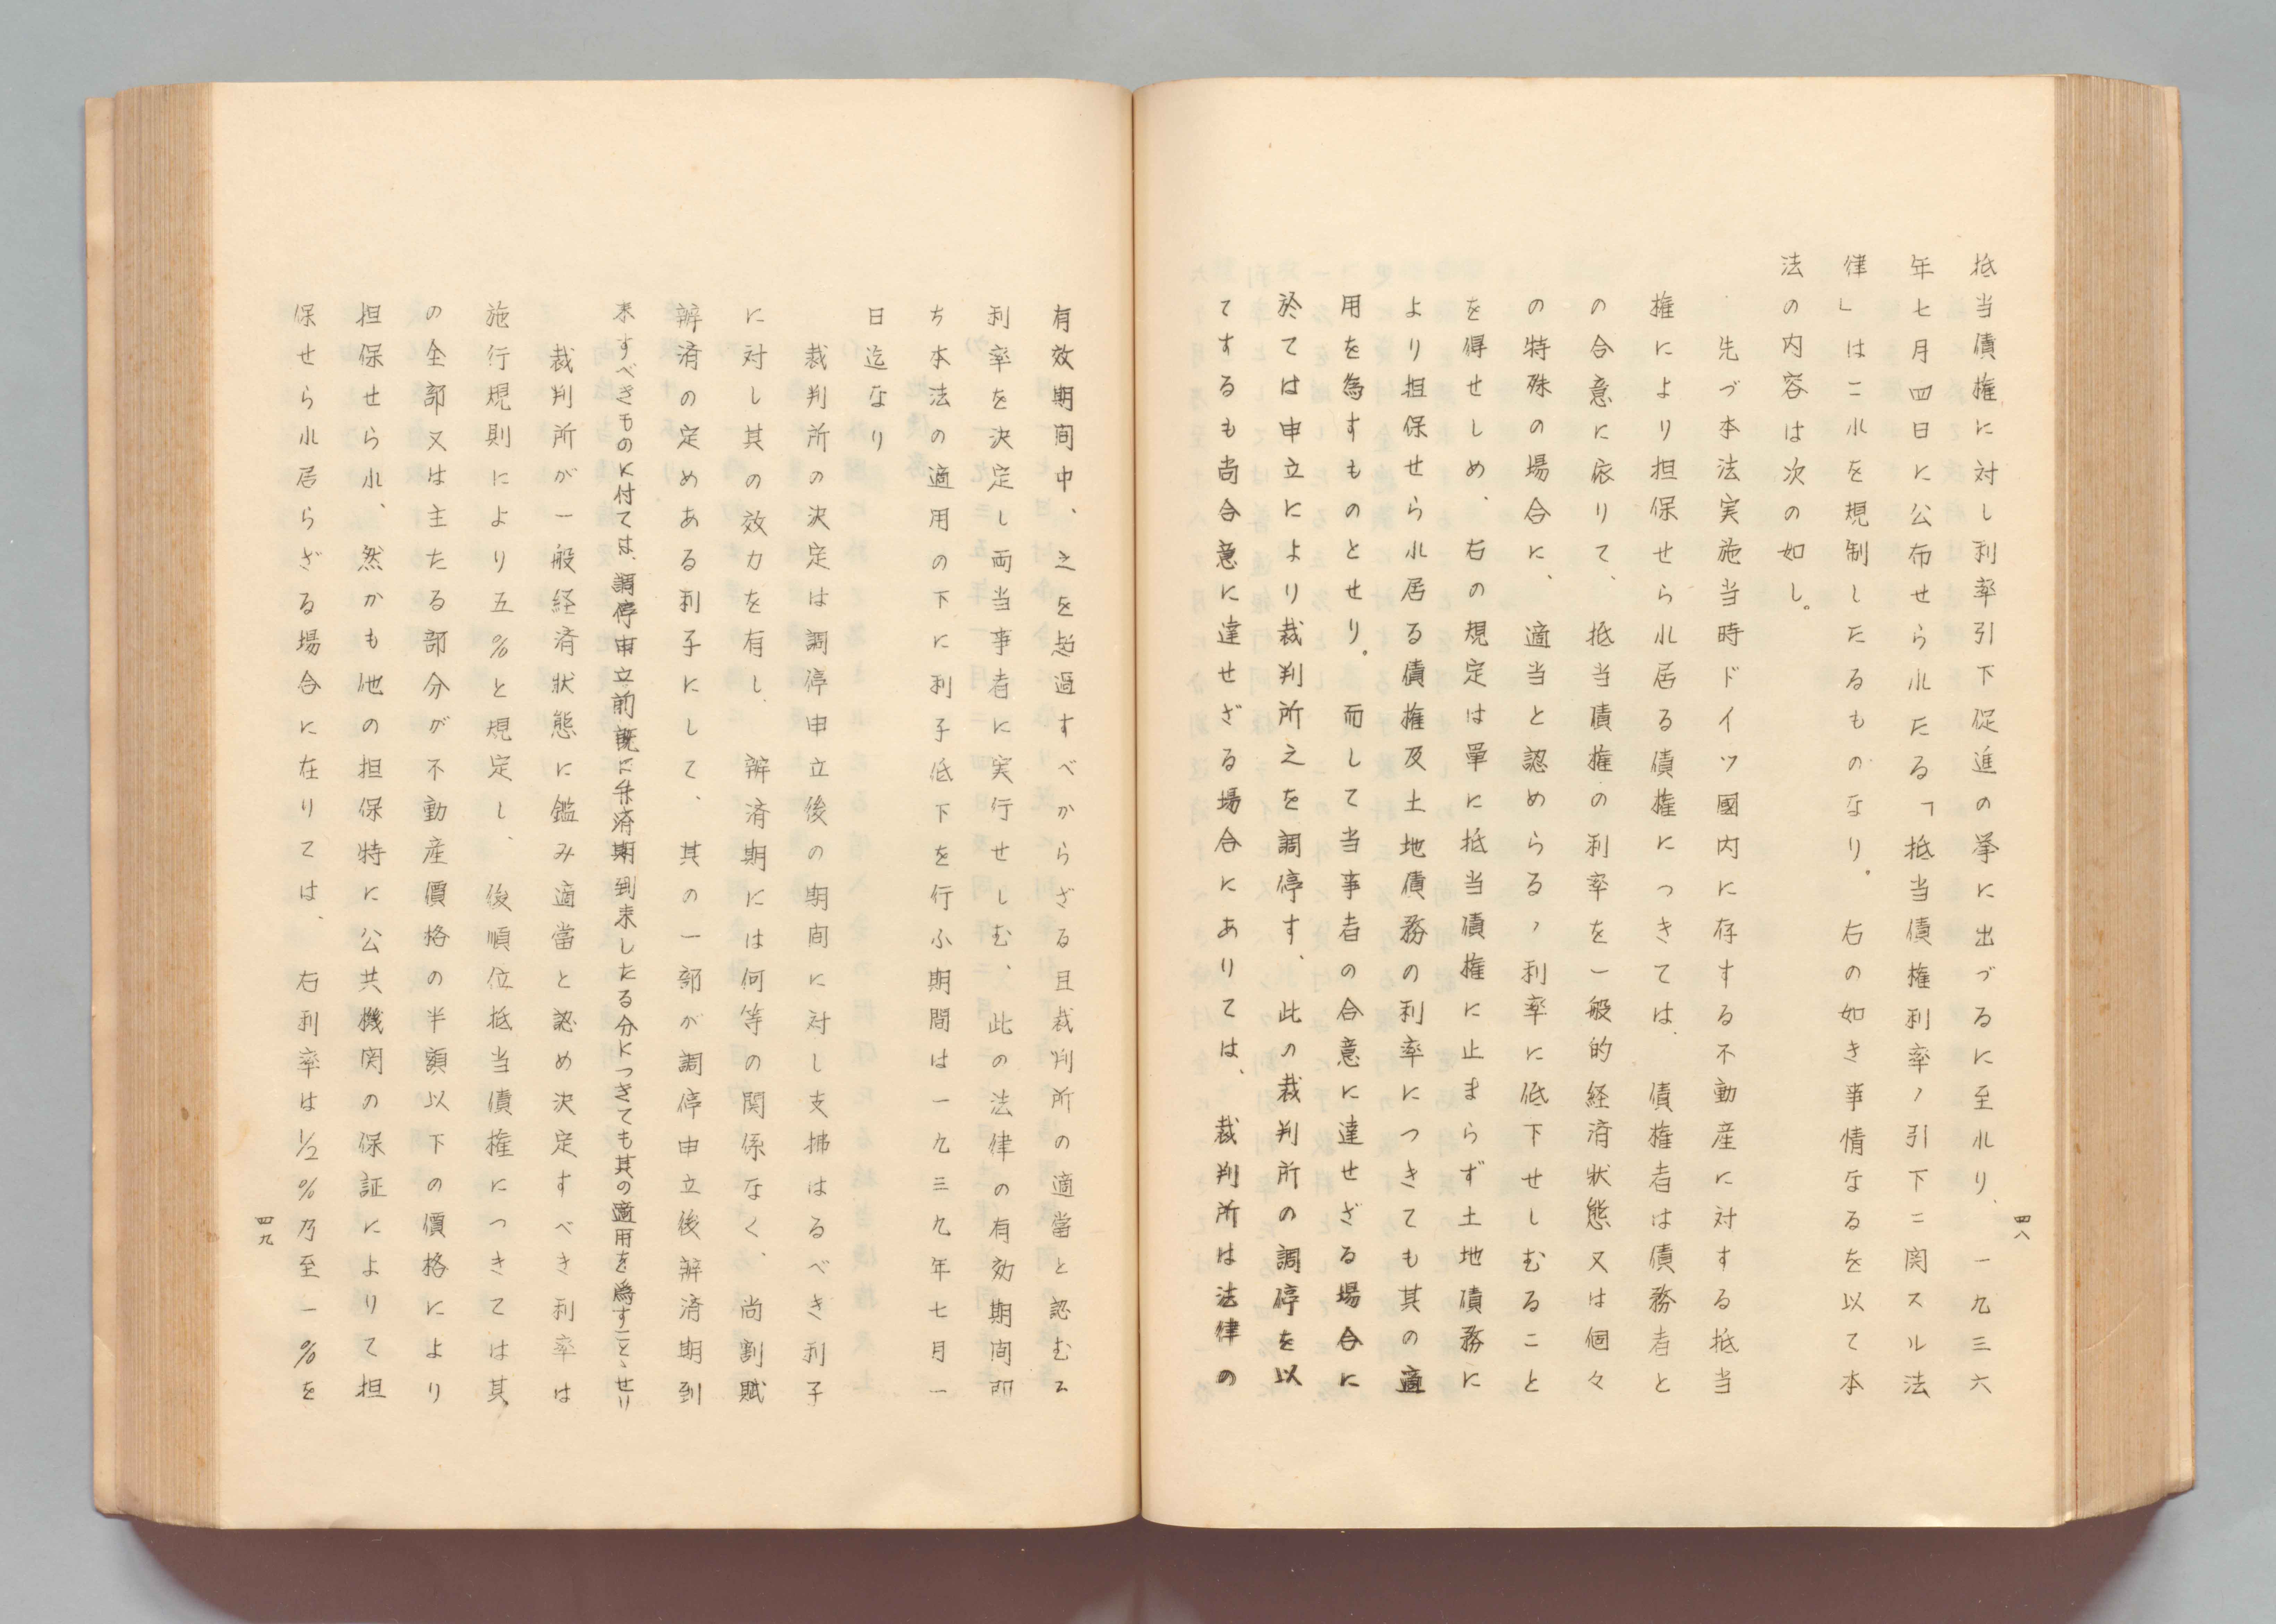 抵当債権に対し利率引下促進の挙に出づるに至れり、一九三六
年七月四日に公布せられたる「抵当債権利率ノ引下ニ関スル法
律」はこれを規制したるものなり。右の如き事情なるを以て本
法の内容は次の如し。
先づ本法実施当時ドイツ國内に存する不動産に対する抵当
権により担保せられ居る債権につきては、債権者は債務者と
の合意に依りて、抵当債権の利率を一般的経済状態又は個々
の特殊の場合に、適当と認めらるゝ利率に低下せしむること
を得せしめ、右の規定は単に抵当債権に止まらず土地債務に
より担保せられ居る債権及土地債務の利率につきても其の適
用を為すものとせり。而して当事者の合意に達せざる場合に
於ては申立により裁判所之を調停す、此の裁判所の調停を以
てするも尚合意に達せざる場合にありては、裁判所は法律の
四八
有效期間中、之を超過すべからざる且裁判所の適當と認むる
利率を決定し両当事者に実行せしむ、此の法律の有効期間即
ち本法の適用の下に利子低下を行ふ期間は一九三九年七月一
日迄なり
裁判所の決定は調停申立後の期間に対し支拂はるべき利子
に対し其の效力を有し、辨済期には何等の関係なく、尚割賦
辨済の定めある利子にして、其の一部が調停申立後辨済期到
来すべきものに付ては、調停申立前既に弁済期到来したる分につきても其の適用を為すこととせり
裁判所が一般経済状態に鑑み適當と認め決定すべき利率は
施行規則により五%と規定し、後順位抵当債権につきては其
の全部又は主たる部分が不動産價格の半額以下の價格により
担保せられ、然かも他の担保特に公共機関の保証によりて担
保せられ居らざる場合に在りては、右利率は1/2%乃至一%を
四九